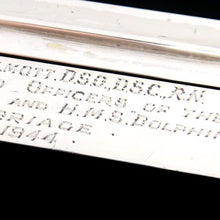 MOTT. D.S.O., D.S.C., R.N.
OFFICERS OF THE
AND H.M.S. DOLPHIN
RIAGE
1944.